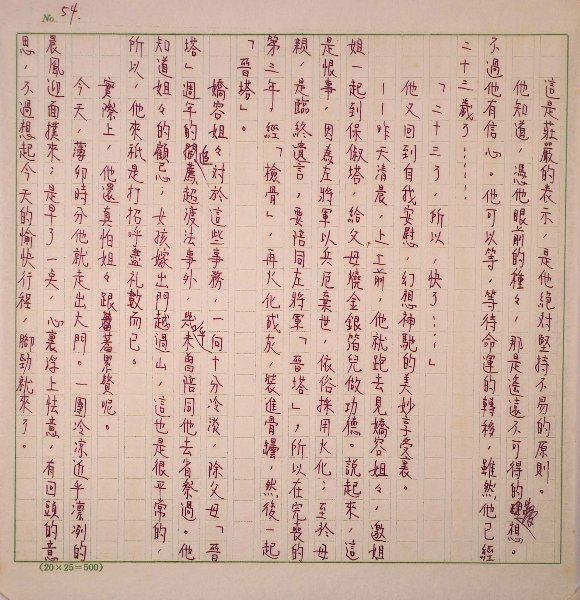 No. 54.
這是莊嚴的表示，是他絕對堅持不易的原則。
他知道，憑他眼前的種々，那是遙遠不可得的夢想。
不過他有信心。他可以等，等待命運的轉移，雖然他已經
二十三歲了……
「二十三了，所以，快了……」
他又回到自我安慰，幻想神馳的美妙享受裏。
——昨天清晨，上工前，他就跑去見嬌容姐々，邀姐
姐一起到保俶塔，給父母燒金銀箔兒做功德。說起來，這
是恨事，因為左將軍以兵危棄世，依俗採用火化；至於母
親，是臨終遺言，要陪同左將軍「晉塔」，所以在完喪的
第三年，經「撿骨」，再火化成灰，裝進骨罈，然後一起
「晉塔」。
嬌容姐々對於這些事務，一向十分冷淡，除父母「晉
塔」週年的追薦超渡法事外，從未曾陪同他去省祭過。他
知道姐々的顧忌；女孩嫁出門越過山，這也是很平常的，
所以，他來祇是打招呼盡礼數而已。
實際上，他還真怕姐々跟著累贅呢。
今天，薄卯時分他就走出大門。一團冷涼近乎凛冽的
晨風迎面撲來；是早了一奌，心裏浮上怯意，有回頭的意
思，不過想起今天的愉快行程，腳勁就來了。
(20×25=500)